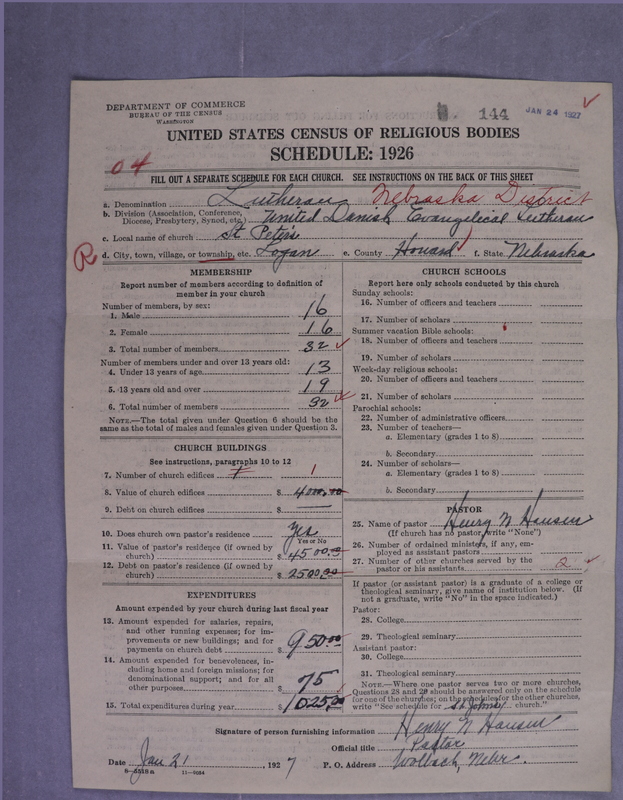 DEPARTMENT OF COMMERCE
BUREAU OF THE CENSUS
WASHINGTON
144
JAN 24 1927
UNITED STATES CENSUS OF RELIGIOUS BODIES
SCHEDULE: 1926
04
FILL OUT A SEPARATE SCHEDULE FOR EACH CHURCH. SEE INSTRUCTIONS ON THE BACK OF THIS SHEET
a. Denomination Lutheran Nebraska District
b. Division (Association, Conference, Diocese, Presbytery, Synod, etc.) United Danish Evangelical Lutheran
c. Local name of church St Peter's
R d. City, town, village, or township, etc. Logan e. County Howard f. State Nebraska
MEMBERSHIP
Report number of members according to definition of
member in your church
Number of members, by sex:
1. Male 16
2. Female 16
3. Total number of members 32
Number of members under and over 13 years old:
4. Under 13 years of age 13
5. 13 years old and over 19
6. Total number of members 32
NOTE.—The total given under Question 6 should be the
same as the total of males and females given under Question 3.
CHURCH BUILDINGS
See instructions, paragraphs 10 to 12
7. Number of church edifices 1
8. Value of church edifices $ 4000.00
9. Debt on church edifices $
10. Does church own pastor's residence Yes
Yes or No
11. Value of pastor's residence (if owned by
church) $ 4500.00
12. Debt on pastor's residence (if owned by
church) $ 2500.00
EXPENDITURES
Amount expended by your church during last fiscal year
13. Amount expended for salaries, repairs,
and other running expenses; for im-
provements or new buildings; and for
payments on church debt $ 950.00
14. Amount expended for benevolences, in-
cluding home and foreign missions; for
denominational support; and for all
other purposes $ 75
15. Total expenditures during year $ 1025.00
CHURCH SCHOOLS
Report here only schools conducted by this church
Sunday schools:
16. Number of officers and teachers
17. Number of scholars
Summer vacation Bible schools:
18. Number of officers and teachers
19. Number of scholars
Week-day religious schools:
20. Number of officers and teachers
21. Number of scholars
Parochial schools:
22. Number of administrative officers
23. Number of teachers—
a. Elementary (grades 1 to 8)
b. Secondary
24. Number of scholars—
a. Elementary (grades 1 to 8)
b. Secondary
PASTOR
25. Name of pastor Henry N Hansen
(If church has no pastor, write "None")
26. Number of ordained ministers, if any, em-
ployed as assistant pastors
27. Number of other churches served by the
pastor or his assistants 2
If pastor (or assistant pastor) is a graduate of a college or
theological seminary, give name of institution below. (If
not a graduate, write "No" in the space indicated.)
Pastor:
28. College
29. Theological seminary
Assistant pastor:
30. College
31. Theological seminary
NOTE.—Where one pastor serves two or more churches,
Questions 28 and 29 should be answered only on the schedule
for one of the churches; on the schedules for the other churches,
write "See schedule for St. Johns church."
Signature of person furnishing information Henry N Hansen
Official title Pastor
Date Jan 21, 1927 P. O. Address Wolbach, Nebr.
11—9034